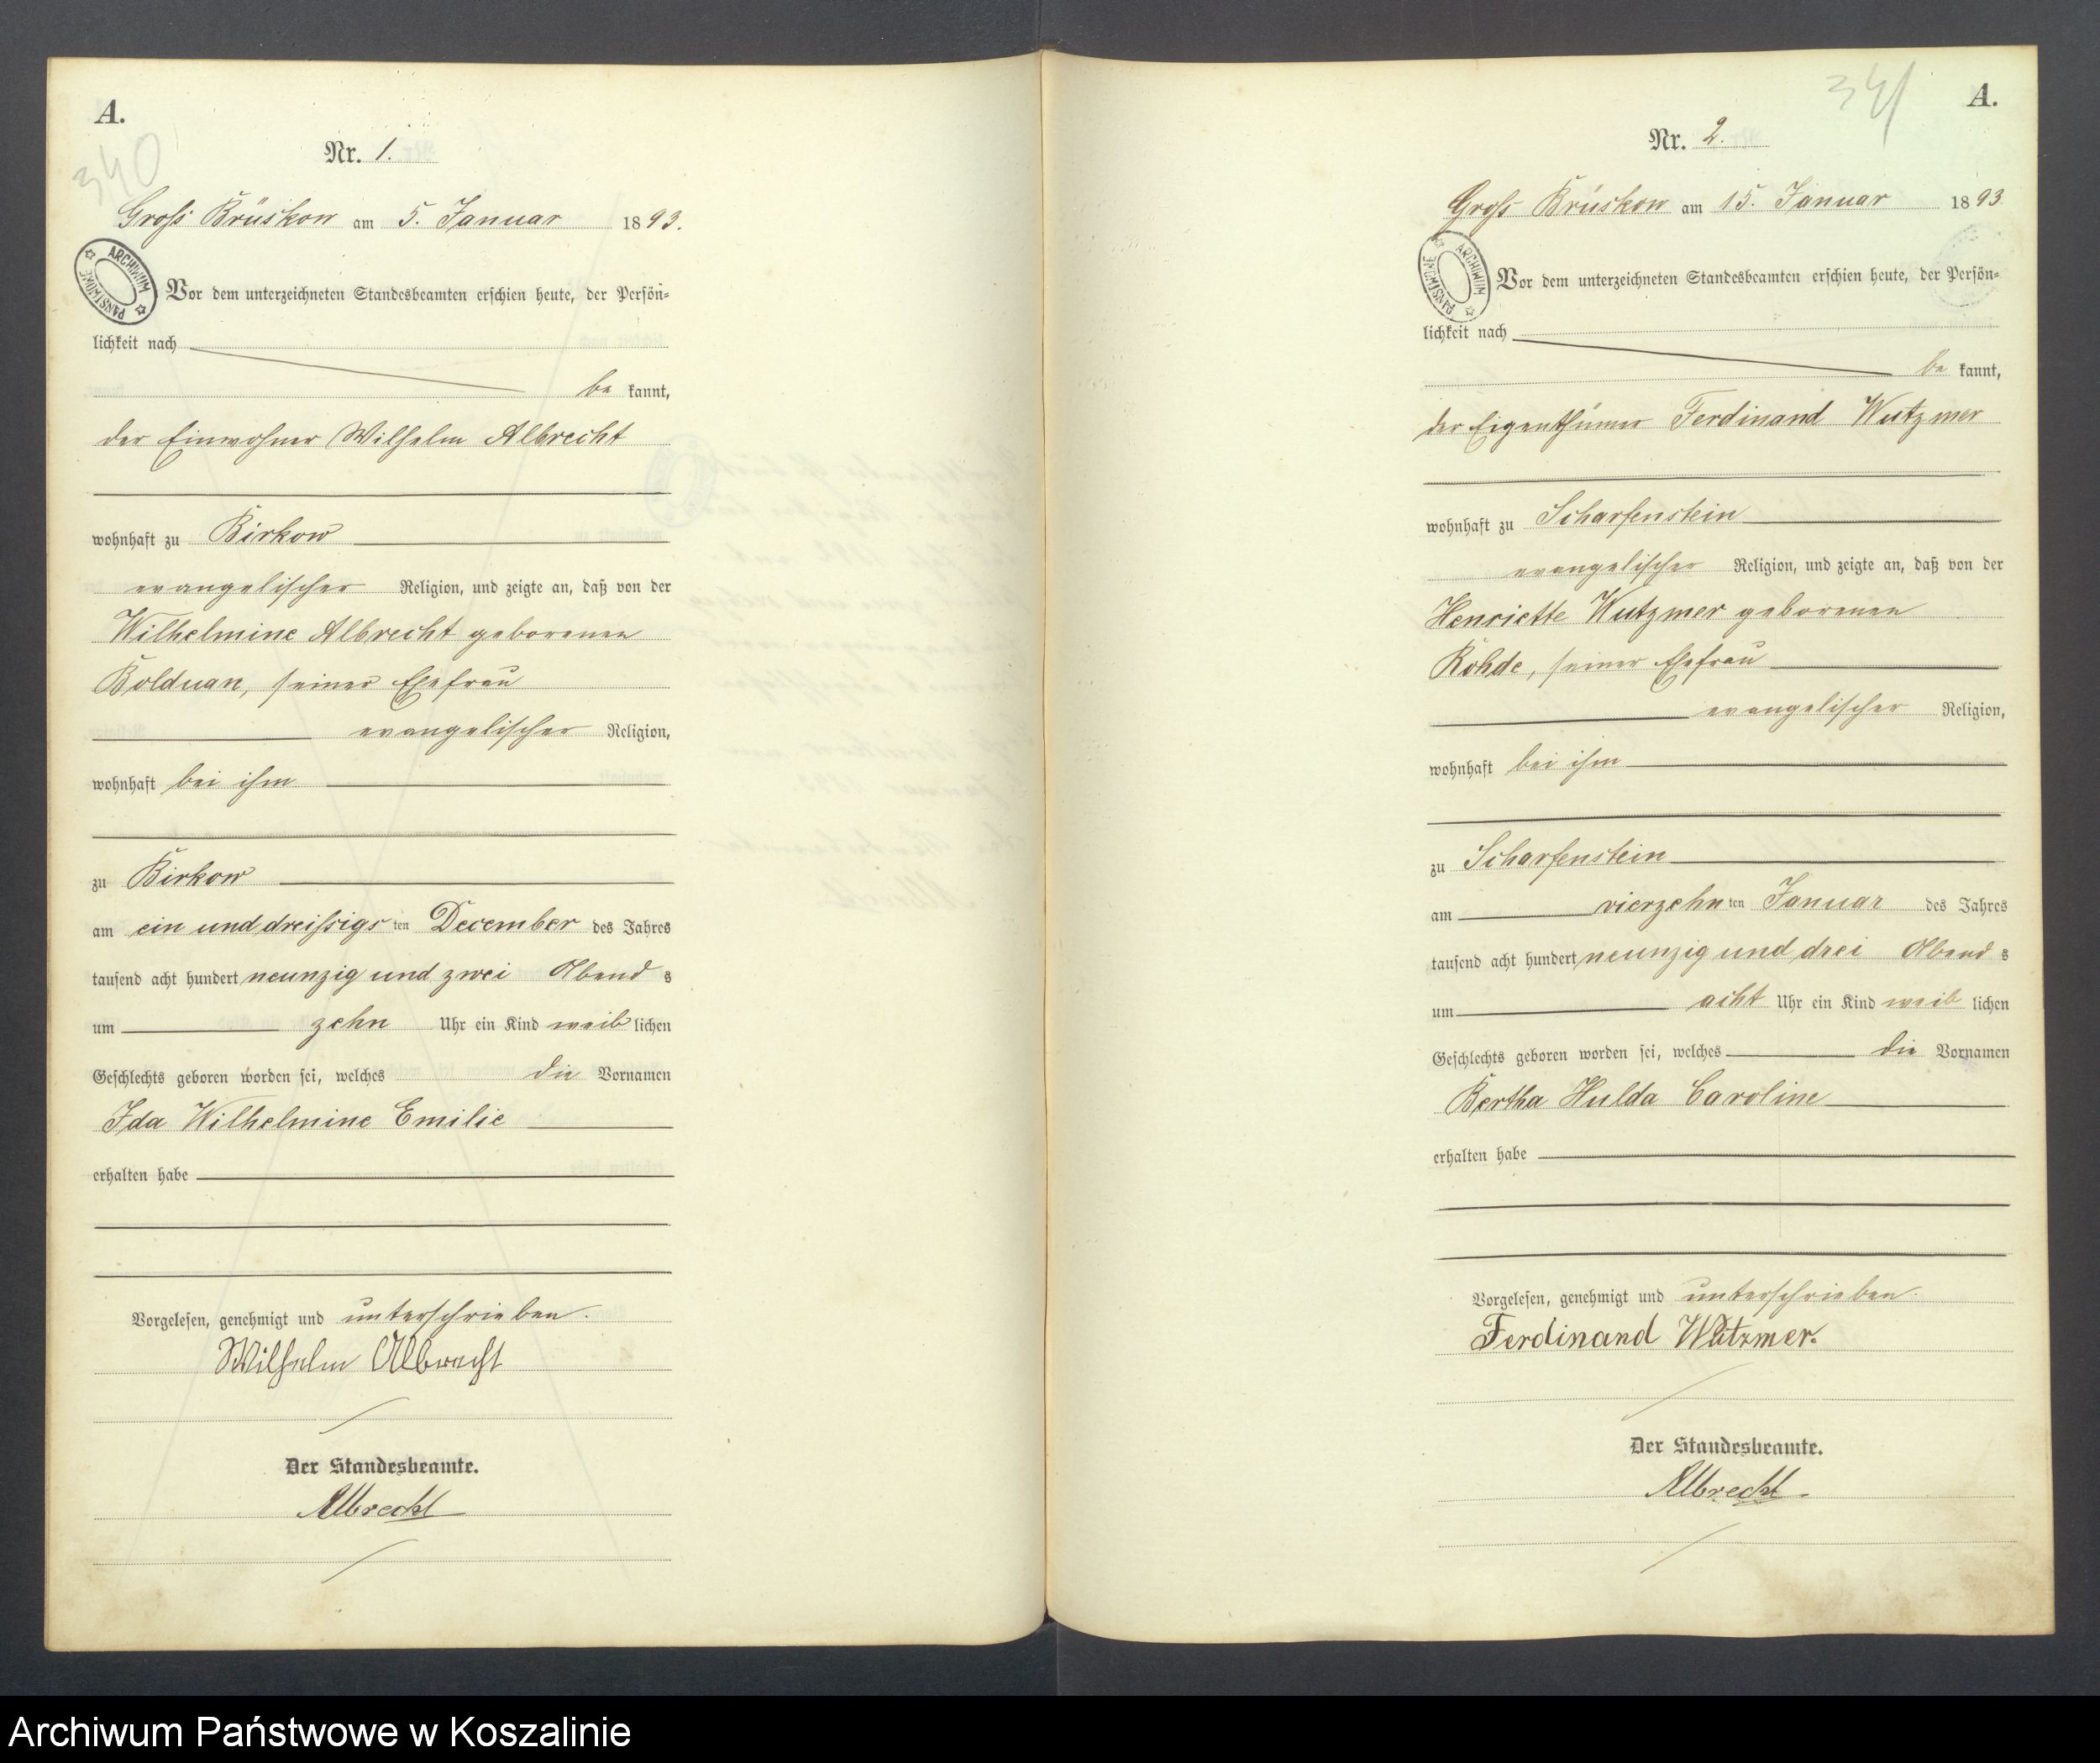 A.
340
Nr. 1.
Groß Brüskow am 5. Januar 1893.
ARCHIWUM PAŃSTWOWE
Vor dem unterzeichneten Standesbeamten erschien heute, der Persön-
lichkeit nach
be kannt,
der Einwohner Wilhelm Albrecht
wohnhaft zu Birkow
evangelischer Religion, und zeigte an, daß von der
Wilhelmine Albrecht geborenen
Bolduan, seiner Ehefrau
evangelischer Religion,
wohnhaft bei ihm
zu Birkow
am ein und dreißigsten December des Jahres
tausend acht hundert neunzig und zwei Abends
um zehn Uhr ein Kind weiblichen
Geschlechts geboren worden sei, welches die Vornamen
Ida Wilhelmine Emilie
erhalten habe
Vorgelesen, genehmigt und unterschrieben.
Wilhelm Albrecht
Der Standesbeamte.
Albrecht
341
A.
Nr. 2.
Groß Brüskow am 15. Januar 1893
ARCHIWUM PAŃSTWOWE
Vor dem unterzeichneten Standesbeamten erschien heute, der Persön-
lichkeit nach
be kannt,
der Eigenthümer Ferdinand Wutzmer
wohnhaft zu Scharfenstein
evangelischer Religion, und zeigte an, daß von der
Henriette Wutzmer geborenen
Rohde, seiner Ehefrau
evangelischer Religion,
wohnhaft bei ihm
zu Scharfenstein
am vierzehnten Januar des Jahres
tausend acht hundert neunzig und drei Abends
um acht Uhr ein Kind weiblichen
Geschlechts geboren worden sei, welches die Vornamen
Bertha Hulda Caroline
erhalten habe
Vorgelesen, genehmigt und unterschrieben.
Ferdinand Wutzmer.
Der Standesbeamte.
Albrecht.
Archiwum Państwowe w Koszalinie